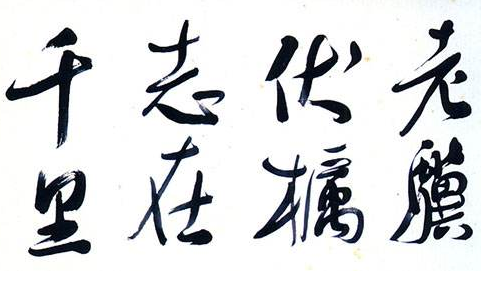 老驥
伏櫔
志在
千里